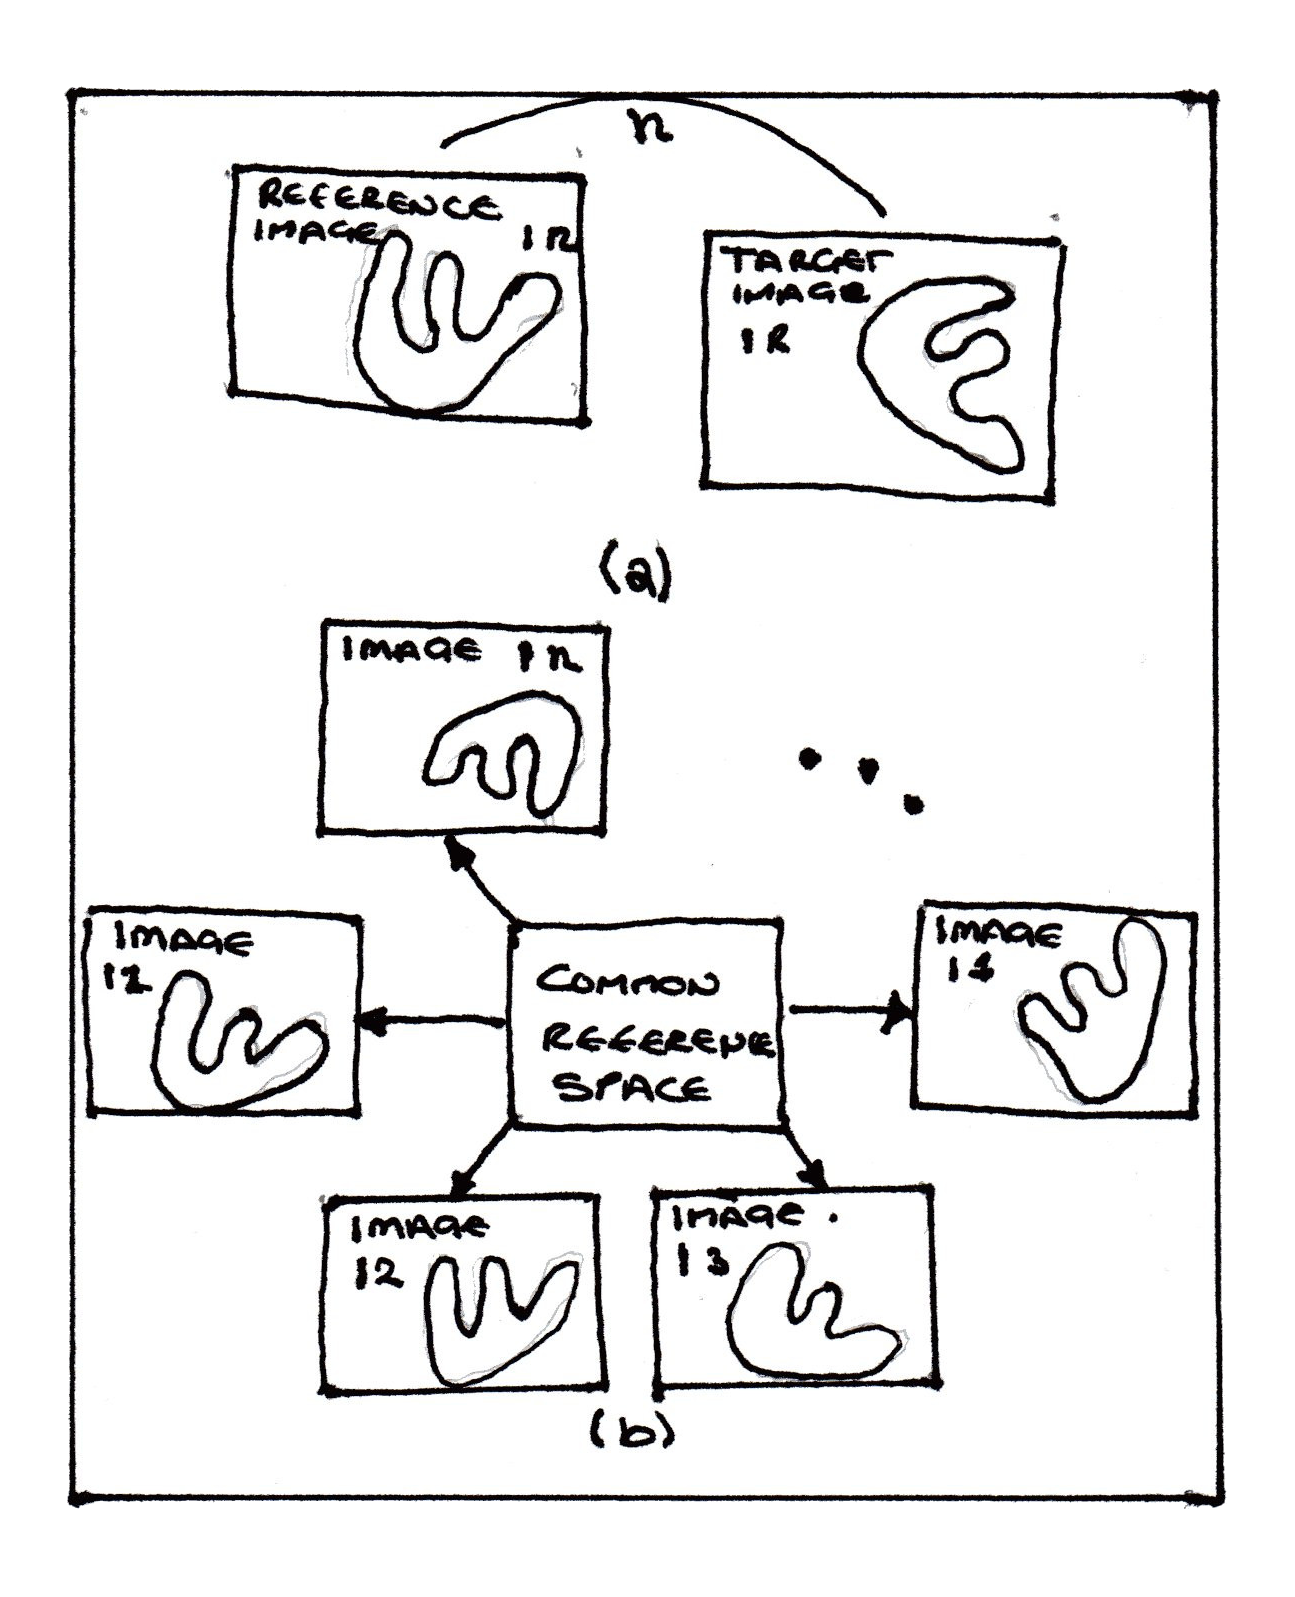 n
REFERENCE
IMAGE
In
TARGET
IMAGE
IR
(a)
IMAGE In
IMAGE
I1
COMMON
REFERENCE
SPACE
IMAGE
IMAGE
I2
IMAGE .
I3
(b)